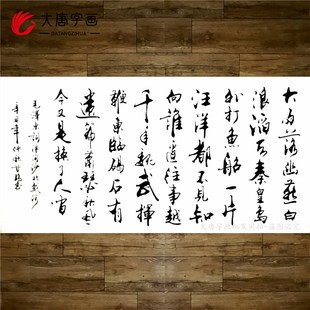 大唐字画
DATANGZIHUA
大雨落幽燕白
浪滔天秦皇島
外打魚船一片
汪洋都不見知
向誰邊往事越
千年魏武揮
鞭東臨碣石有
遺篇蕭瑟秋風
今又是換了人間
毛澤東詞浪淘沙北戴河